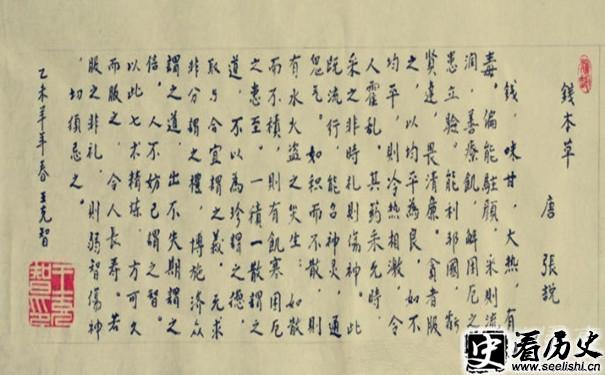 錢本草
唐 張說
錢，味甘，大熱，有
毒。偏能駐顏，采則流
潤，善療飢，解困厄之
患立驗。能利邦國，
賢達，畏清廉。貪者服
之，以均平為良。如不
均平，則冷熱相激，令
人霍亂。其药采无時，
采之非時則傷神。此
既流行，能召神灵，通
鬼气。如积而不散，則
有水火盗之災生；如散
而不積，則有飢寒困厄
之患至。一積一散謂之
道，不以為珍謂之德，
取与合宜謂之義，无求
非分謂之禮，博施濟众
謂之道，出不失期謂之
信，人不妨己謂之智。
以此七术精炼，方可久
而服之，令人長寿。若
服之非礼，則弱智傷神
，切須忌之。
乙未羊年春王克智
史 看历史
www.seelishi.cn